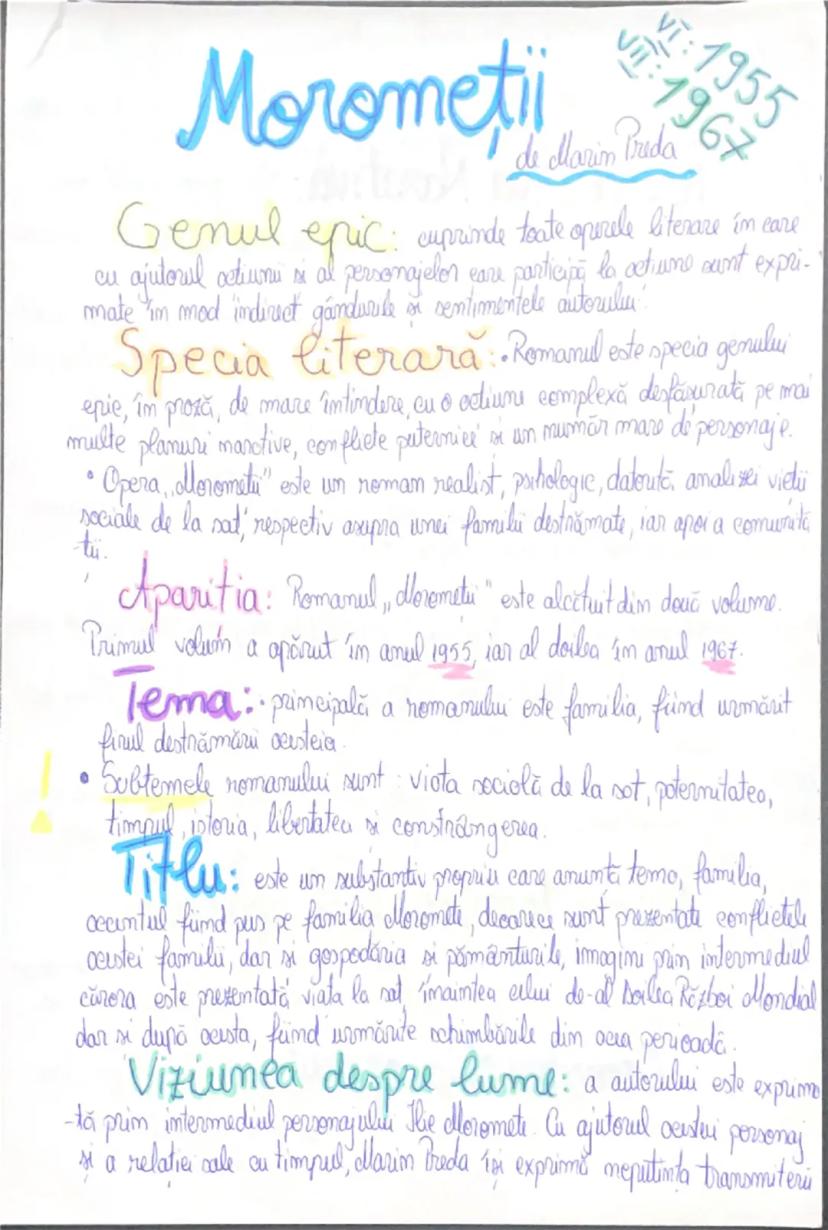 Moromeții
VI: 1955
VII: 1967
de Marin Preda
Genul epic: cuprinde toate operele literare în care
cu ajutorul acțiunii și al personajelor care participă la acțiune sunt expri-
mate în mod indirect gândurile și sentimentele autorului.
Specia literară: • Romanul este specia genului
epic, în proză, de mare întindere, cu o acțiune complexă desfășurată pe mai
multe planuri narative, conflicte puternice și un număr mare de personaje.
• Opera „Moromeții" este un roman realist, psihologic, datorită analizei vieții
sociale de la sat, respectiv asupra unei familii destrămate, iar apoi a comunită
-ții.
Apariția: Romanul „Moromeții" este alcătuit din două volume.
Primul volum a apărut în anul 1955, iar al doilea în anul 1967.
Tema: • principală a romanului este familia, fiind urmărit
firul destrămării acesteia.
! • Subtemele romanului sunt: viața socială de la sat, paternitatea,
timpul, istoria, libertatea și constrângerea.
Titlu: este un substantiv propriu care anunță tema, familia,
accentul fiind pus pe familia Moromete, deoarece sunt prezentate conflictele
acestei familii, dar și gospodăria și pământurile, imagini prin intermediul
cărora este prezentată viața la sat, înaintea celui de-al Doilea Război Mondial
dar și după acesta, fiind urmărite schimbările din acea perioadă.
Viziunea despre lume: a autorului este exprima
-tă prin intermediul personajului Ilie Moromete. Cu ajutorul acestui personaj
și a relației sale cu timpul, Marin Preda își exprimă neputința transmiterii